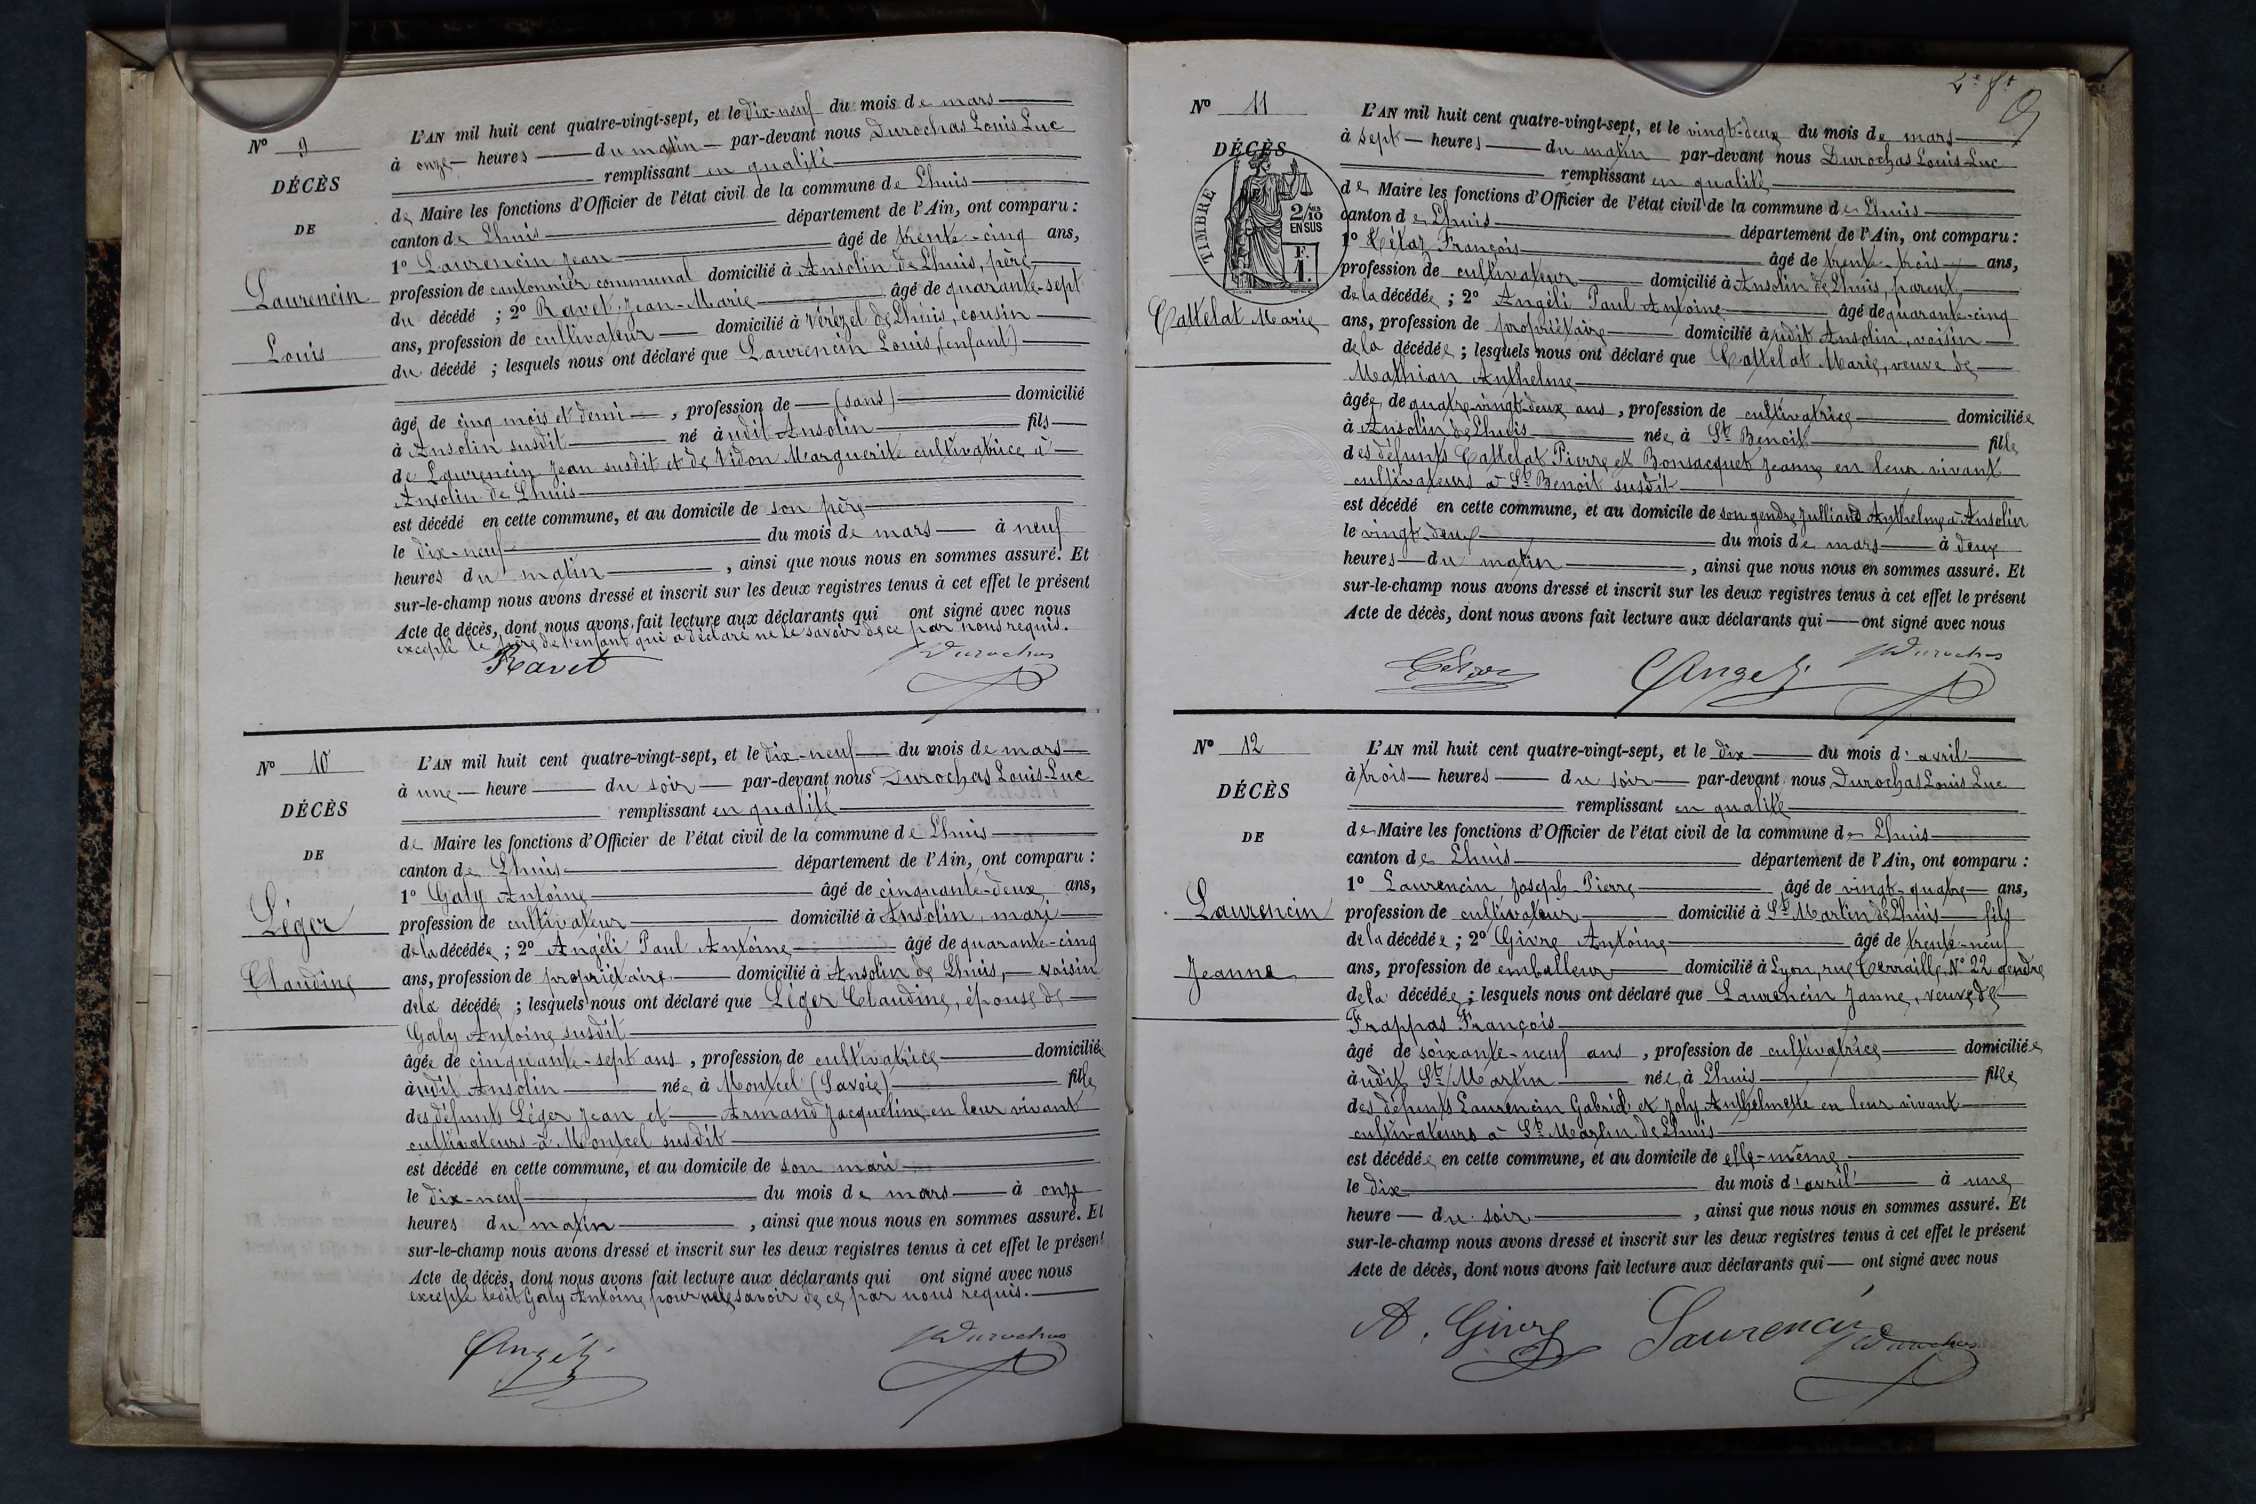 Nº 9
DÉCÈS
DE
Laurencin
Louis
L'AN mil huit cent quatre-vingt-sept, et le dix-neuf du mois de mars
à onze heures du matin par-devant nous Durochas Louis Luc
remplissant en qualité
de Maire les fonctions d'Officier de l'état civil de la commune de Lhuis
canton de Lhuis département de l'Ain, ont comparu :
1º Laurencin Jean âgé de trente-cinq ans,
profession de cantonnier communal domicilié à Ansolin de Lhuis, père
du décédé ; 2º Ravet Jean-Marie âgé de quarante-sept
ans, profession de cultivateur domicilié à Vérézel de Lhuis, cousin
du décédé ; lesquels nous ont déclaré que Laurencin Louis, (enfant)
âgé de cinq mois et demi , profession de (sans) domicilié
à Ansolin susdit né àudit Ansolin fils
de Laurencin Jean susdit et de Vidon Marguerite cultivatrice à
Ansolin de Lhuis
est décédé en cette commune, et au domicile de son père
le dix-neuf du mois de mars à neuf
heures du matin , ainsi que nous nous en sommes assuré. Et
sur-le-champ nous avons dressé et inscrit sur les deux registres tenus à cet effet le présent
Acte de décès, dont nous avons fait lecture aux déclarants qui ont signé avec nous
excepté le père de l'enfant qui a déclaré ne le savoir de ce par nous requis.
Ravet Durochas
Nº 10
DÉCÈS
DE
Léger
Claudine
L'AN mil huit cent quatre-vingt-sept, et le dix-neuf du mois de mars
à une heure du soir par-devant nous Durochas Louis-Luc
remplissant en qualité
de Maire les fonctions d'Officier de l'état civil de la commune de Lhuis
canton de Lhuis département de l'Ain, ont comparu :
1º Galy Antoine âgé de cinquante-deux ans,
profession de cultivateur domicilié à Ansolin, mari
de la décédée ; 2º Angéli Paul Antoine âgé de quarante-cinq
ans, profession de propriétaire domicilié à Ansolin de Lhuis, voisin
de la décédée ; lesquels nous ont déclaré que Léger Claudine, épouse de
Galy Antoine susdit
âgée de cinquante-sept ans , profession de cultivatrice domiciliée
àudit Ansolin née à Montcel (Savoie) fille
des défunts Léger Jean et Armand Jacqueline en leur vivant
cultivateurs à Montcel susdit
est décédé en cette commune, et au domicile de son mari
le dix-neuf du mois de mars à onze
heures du matin , ainsi que nous nous en sommes assuré. Et
sur-le-champ nous avons dressé et inscrit sur les deux registres tenus à cet effet le présent
Acte de décès, dont nous avons fait lecture aux déclarants qui ont signé avec nous
excepté ledit Galy Antoine pour ne le savoir de ce par nous requis.
Angéli Durochas
2e ft
9
Nº 11
DÉCÈS
TIMBRE
2/10
EN SUS
F.
1.
Cattelat Marie
L'AN mil huit cent quatre-vingt-sept, et le vingt-deux du mois de mars
à sept heures du matin par-devant nous Durochas Louis-Luc
remplissant en qualité
de Maire les fonctions d'Officier de l'état civil de la commune de Lhuis
canton de Lhuis département de l'Ain, ont comparu :
1º Tétaz François âgé de trente-trois ans,
profession de cultivateur domicilié à Ansolin de Lhuis, parent,
de la décédée ; 2º Angéli Paul Antoine âgé de quarante-cinq
ans, profession de propriétaire domicilié àudit Ansolin, voisin
de la décédée ; lesquels nous ont déclaré que Cattelat Marie, veuve de
Mathian Anthelme
âgée de quatre-vingt-deux ans , profession de cultivatrice domiciliée
à Ansolin de Lhuis née à St Benoit fille
des défunts Cattelat Pierre et Bonsacquet Jeanne en leur vivant
cultivateurs à St Benoit susdit
est décédé en cette commune, et au domicile de son gendre Julliand Anthelme à Ansolin
le vingt-deux du mois de mars à deux
heures du matin , ainsi que nous nous en sommes assuré. Et
sur-le-champ nous avons dressé et inscrit sur les deux registres tenus à cet effet le présent
Acte de décès, dont nous avons fait lecture aux déclarants qui ont signé avec nous
Angeli Durochas
Nº 12
DÉCÈS
DE
Laurencin
Jeanne
L'AN mil huit cent quatre-vingt-sept, et le dix du mois d'avril
à trois heures du soir par-devant nous Durochas Louis Luc
remplissant en qualité
de Maire les fonctions d'Officier de l'état civil de la commune de Lhuis
canton de Lhuis département de l'Ain, ont comparu :
1º Laurencin Joseph-Pierre âgé de vingt-quatre ans,
profession de cultivateur domicilié à St Martin de Lhuis fils
de la décédée ; 2º Givre Antoine âgé de trente-neuf
ans, profession de emballeur domicilié à Lyon, rue Terraille, Nº 22 gendre
de la décédée ; lesquels nous ont déclaré que Laurencin Janne, veuve de
Frappas François
âgé de soixante-neuf ans , profession de cultivatrice domiciliée
àudit St Martin née à Lhuis fille
des défunts Laurencin Gabriel et Joly Anthelmette en leur vivant
cultivateurs à St Martin de Lhuis
est décédée en cette commune, et au domicile de elle-même
le dix du mois d'avril à une
heure du soir , ainsi que nous nous en sommes assuré. Et
sur-le-champ nous avons dressé et inscrit sur les deux registres tenus à cet effet le présent
Acte de décès, dont nous avons fait lecture aux déclarants qui ont signé avec nous
A. Givre Laurencin Durochas